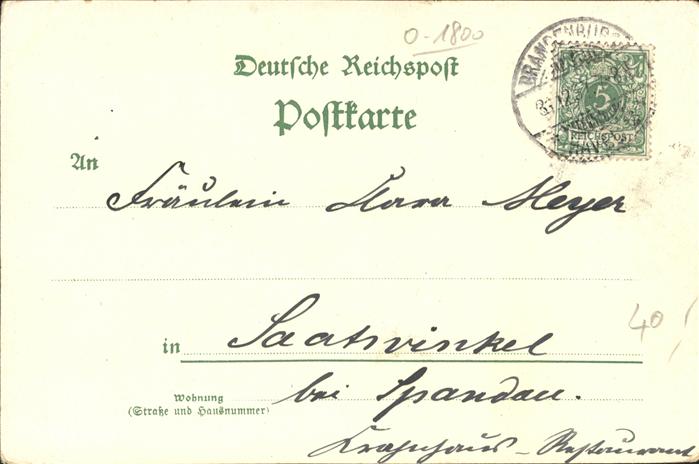 0-1800
Deutsche Reichspost
Postkarte
BRANDENBURG
5
REICHSPOST
HAVEL
An
Fräulein Klara Meyer
in Saatwinkel
40
Wohnung
(Straße und Hausnummer)
bei Spandau.
Krahnhaus-Restaurant